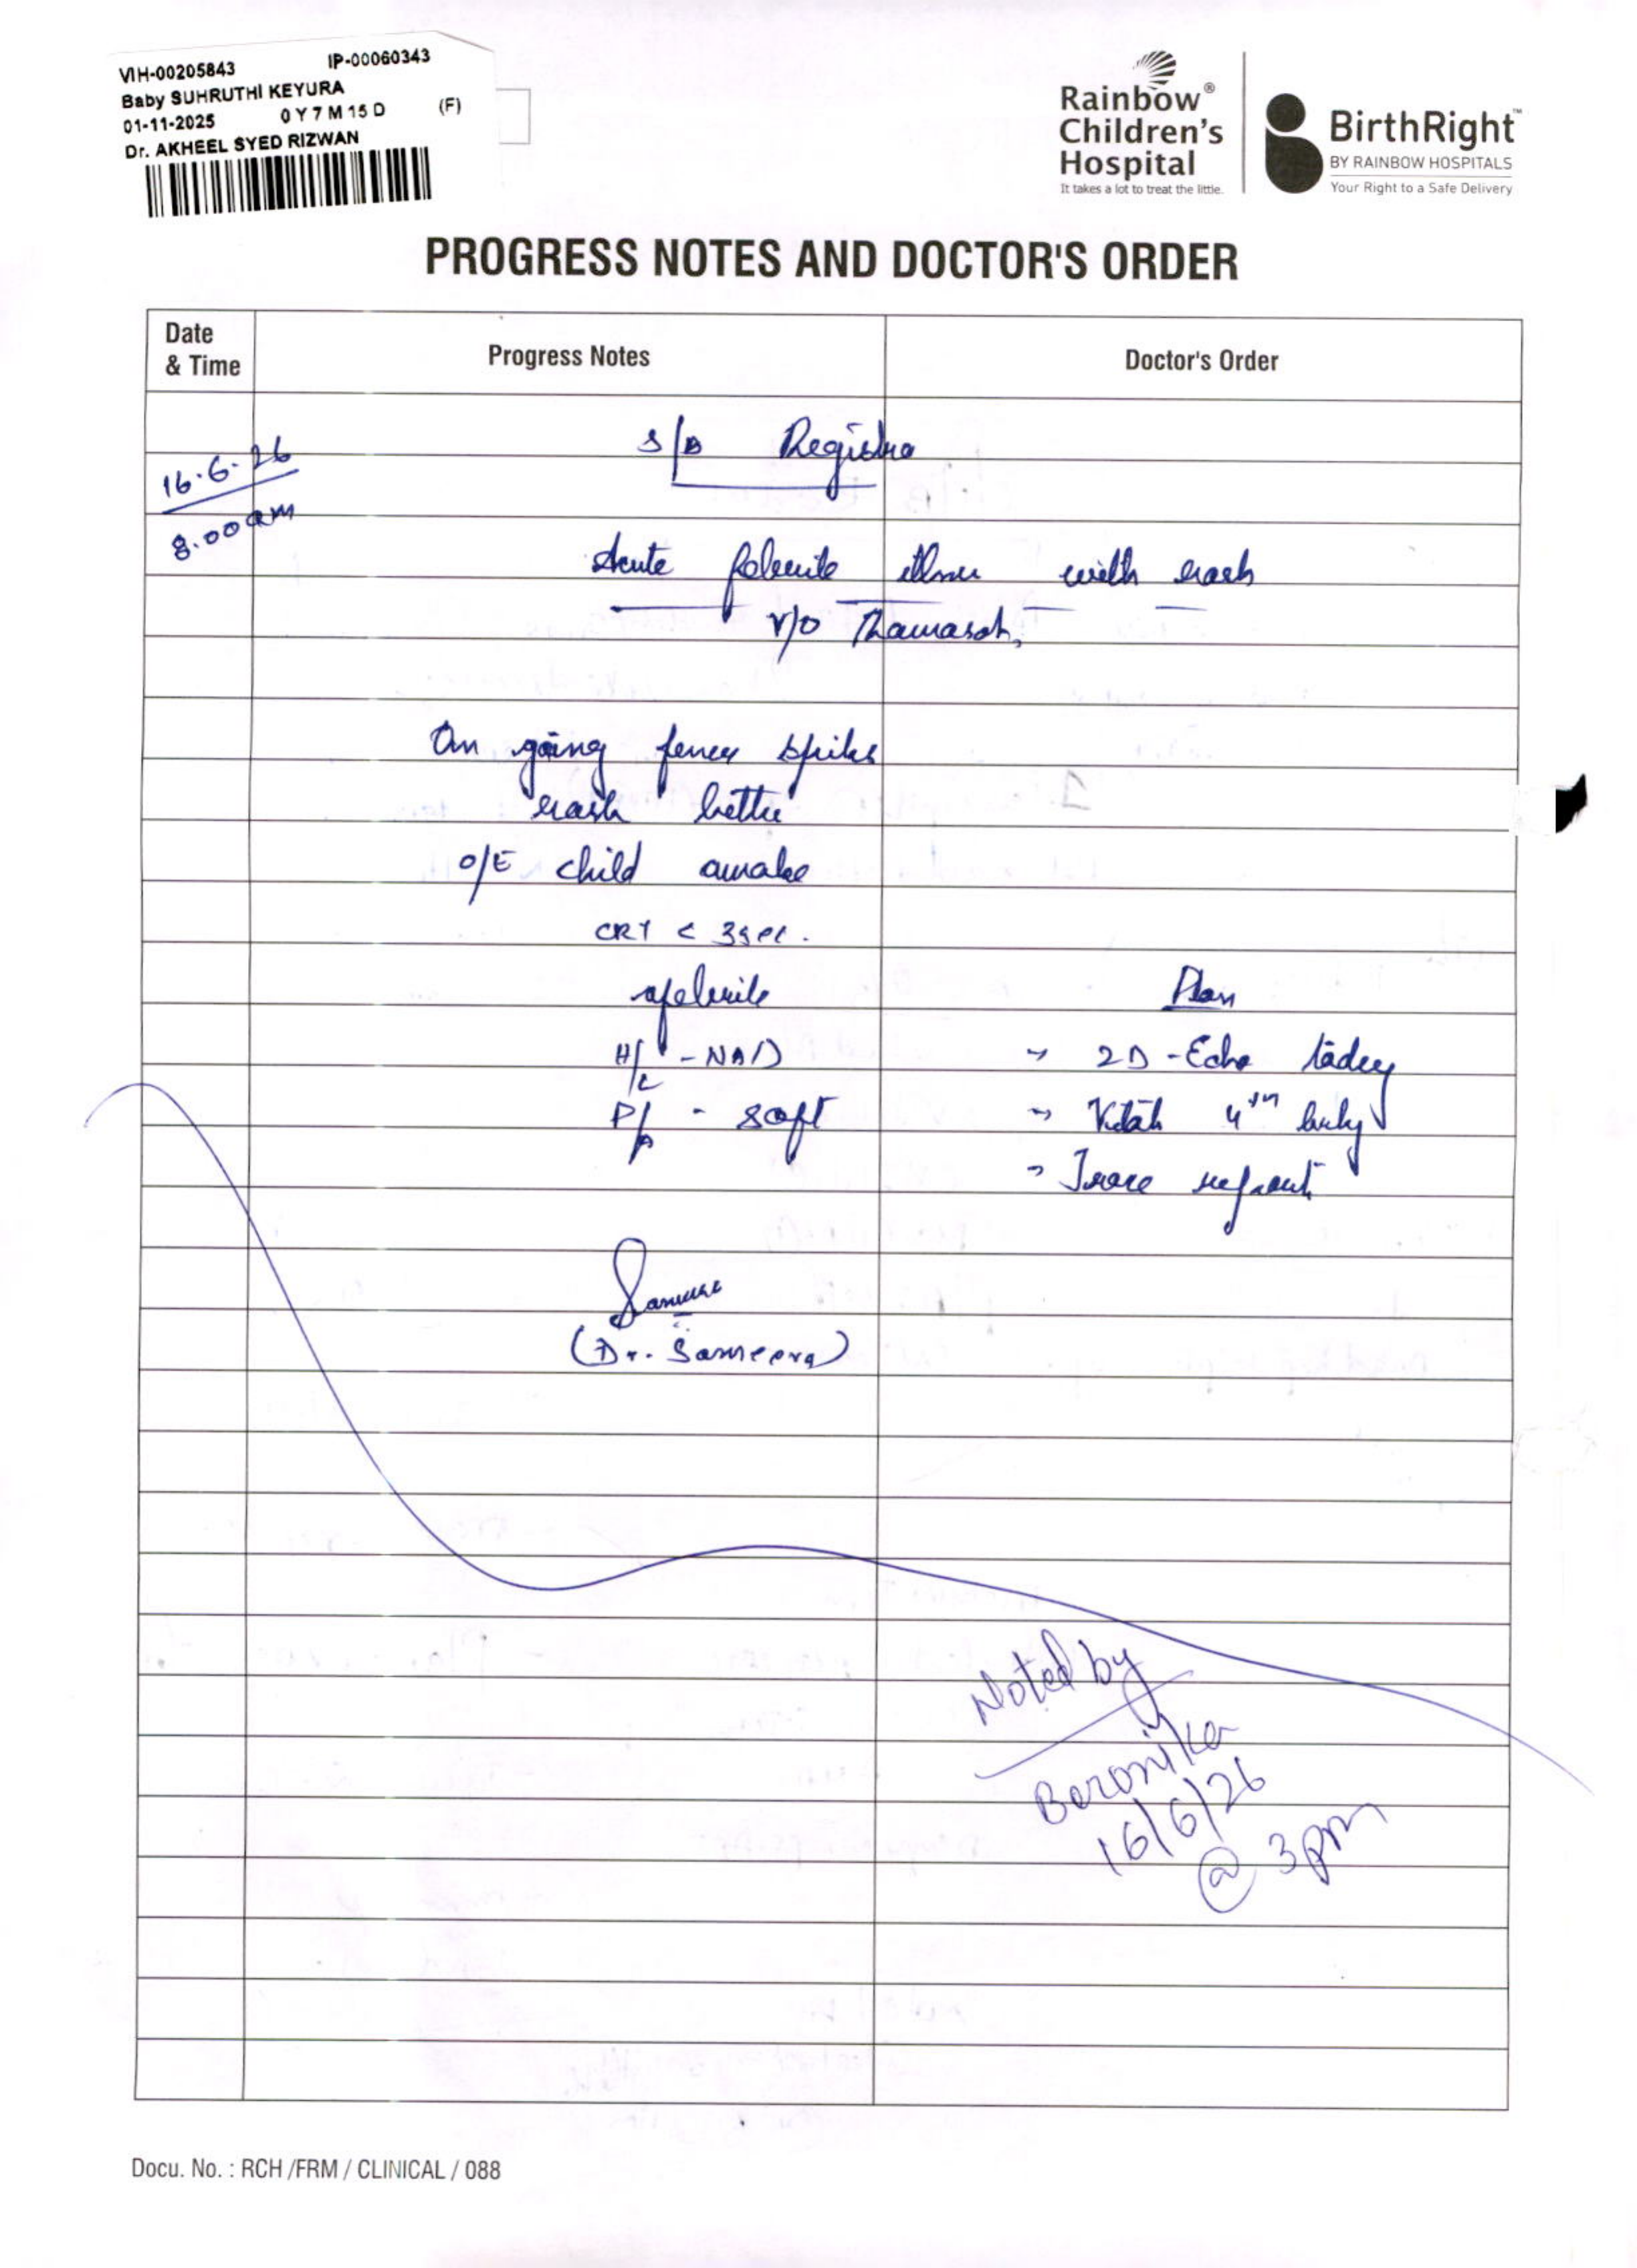 VIH-00205843 IP-00060343
Baby SUHRUTHI KEYURA
01-11-2025 0 Y 7 M 15 D (F)
Dr. AKHEEL SYED RIZWAN
Rainbow®
Children's
Hospital
It takes a lot to treat the little.
BirthRight™
BY RAINBOW HOSPITALS
Your Right to a Safe Delivery
PROGRESS NOTES AND DOCTOR'S ORDER
Date & Time
Progress Notes
Doctor's Order
16.6.26
8.00am
S/B Registra
Acute febrile illness with rash
r/o
On going fever spikes
rash better
O/E child awake
CRT < 3sec.
afebrile
H/L - NAD
P/A - soft
Plan
→ 2D-Echo today
→ Vitals 4th hrly
→ Trace
(Dr. Sameera)
Noted by
Beronika
16/6/26
@ 3pm
Docu. No. : RCH /FRM / CLINICAL / 088